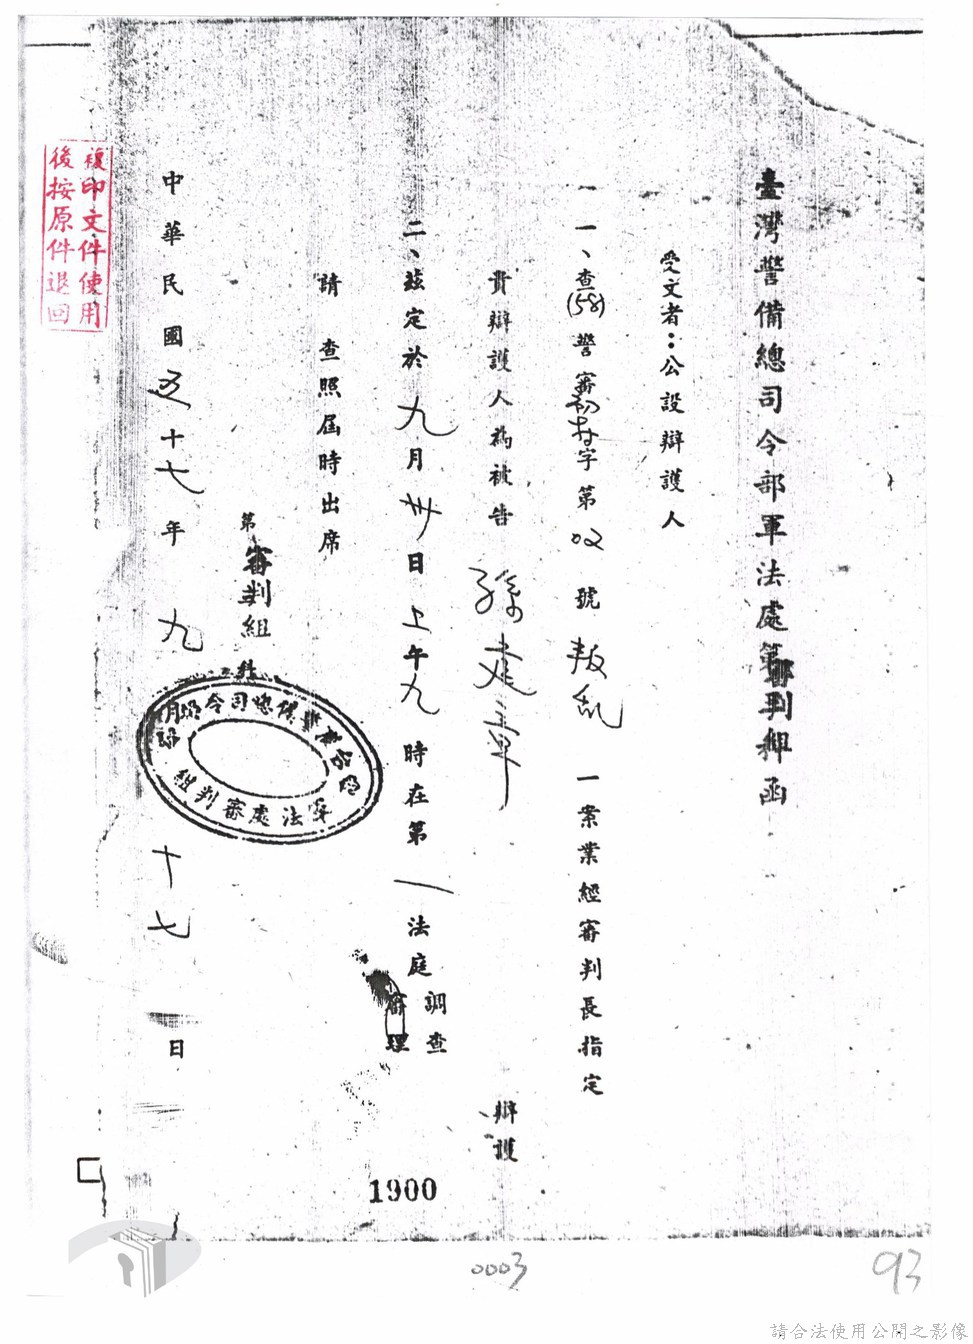 臺灣警備總司令部軍法處審判組函
受文者：公設辯護人
一、查(58)警審初字第 號叛乱一案業經審判長指定
貴辯護人為被告孫建章 辯護
二、茲定於九月卅日上午九時在第一法庭調查
審理
請 查照屆時出席
第
審判組
科
軍法處審判組
中華民國五十七年九月十七日
複印文件使用
後按原件退回
1900
0003
93
請合法使用公開之影像